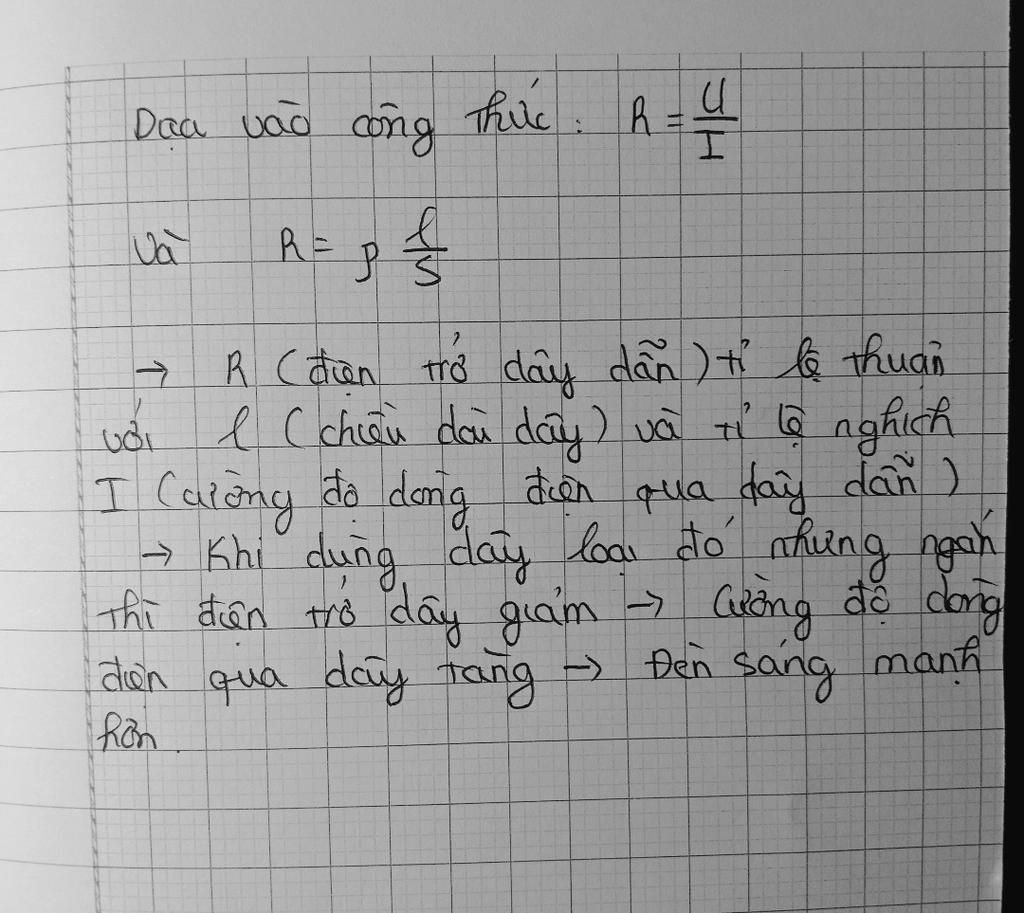 Dựa vào công thức : R = U/I
Và R = ρ l/S
→ R (điện trở dây dẫn) tỉ lệ thuận
với l (chiều dài dây) và tỉ lệ nghịch
I (cường độ dòng điện qua dây dẫn)
→ Khi dùng dây loại đó nhưng ngắn
thì điện trở dây giảm → Cường độ dòng
điện qua dây tăng → Đèn sáng mạnh
hơn.